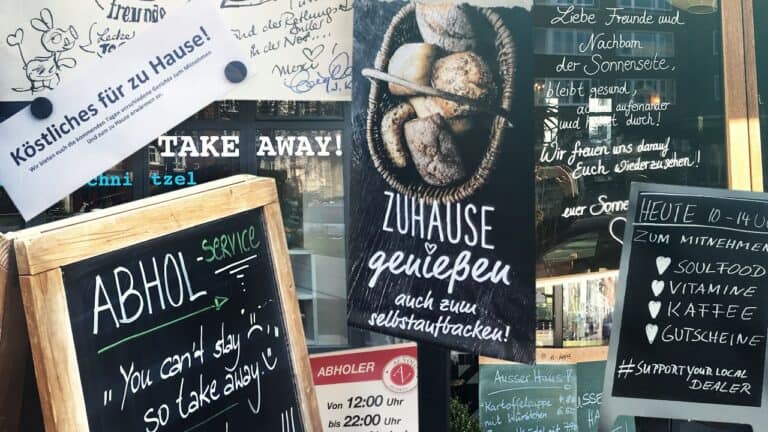 freunde
Lecke
Köstliches für zu Hause!
Wir bieten euch die kommenden Tagen verschiedene Gerichte zum Mitnehmen
Und zum zu Hause erwärmen an.
TAKE AWAY!
chni tzel
ABHOL-service
"You can't stay
so take away."
ZUHAUSE
genießen
auch zum
selbstaufbacken!
ABHOLER
Von 12:00 Uhr
bis 22:00 Uhr
Liebe Freunde und
Nachbarn
der Sonnenseite,
bleibt gesund,
aufeinander
und durch!
Wir freuen uns darauf
Euch wiederzusehen!
euer Sonne
HEUTE 10-14 U
ZUM MITNEHMEN
SOULFOOD
VITAMINE
KAFFEE
GUTSCHEINE
#SUPPORT YOUR LOCAL
DEALER
Ausser Haus
Kartoffelsuppe
mit Würstchen